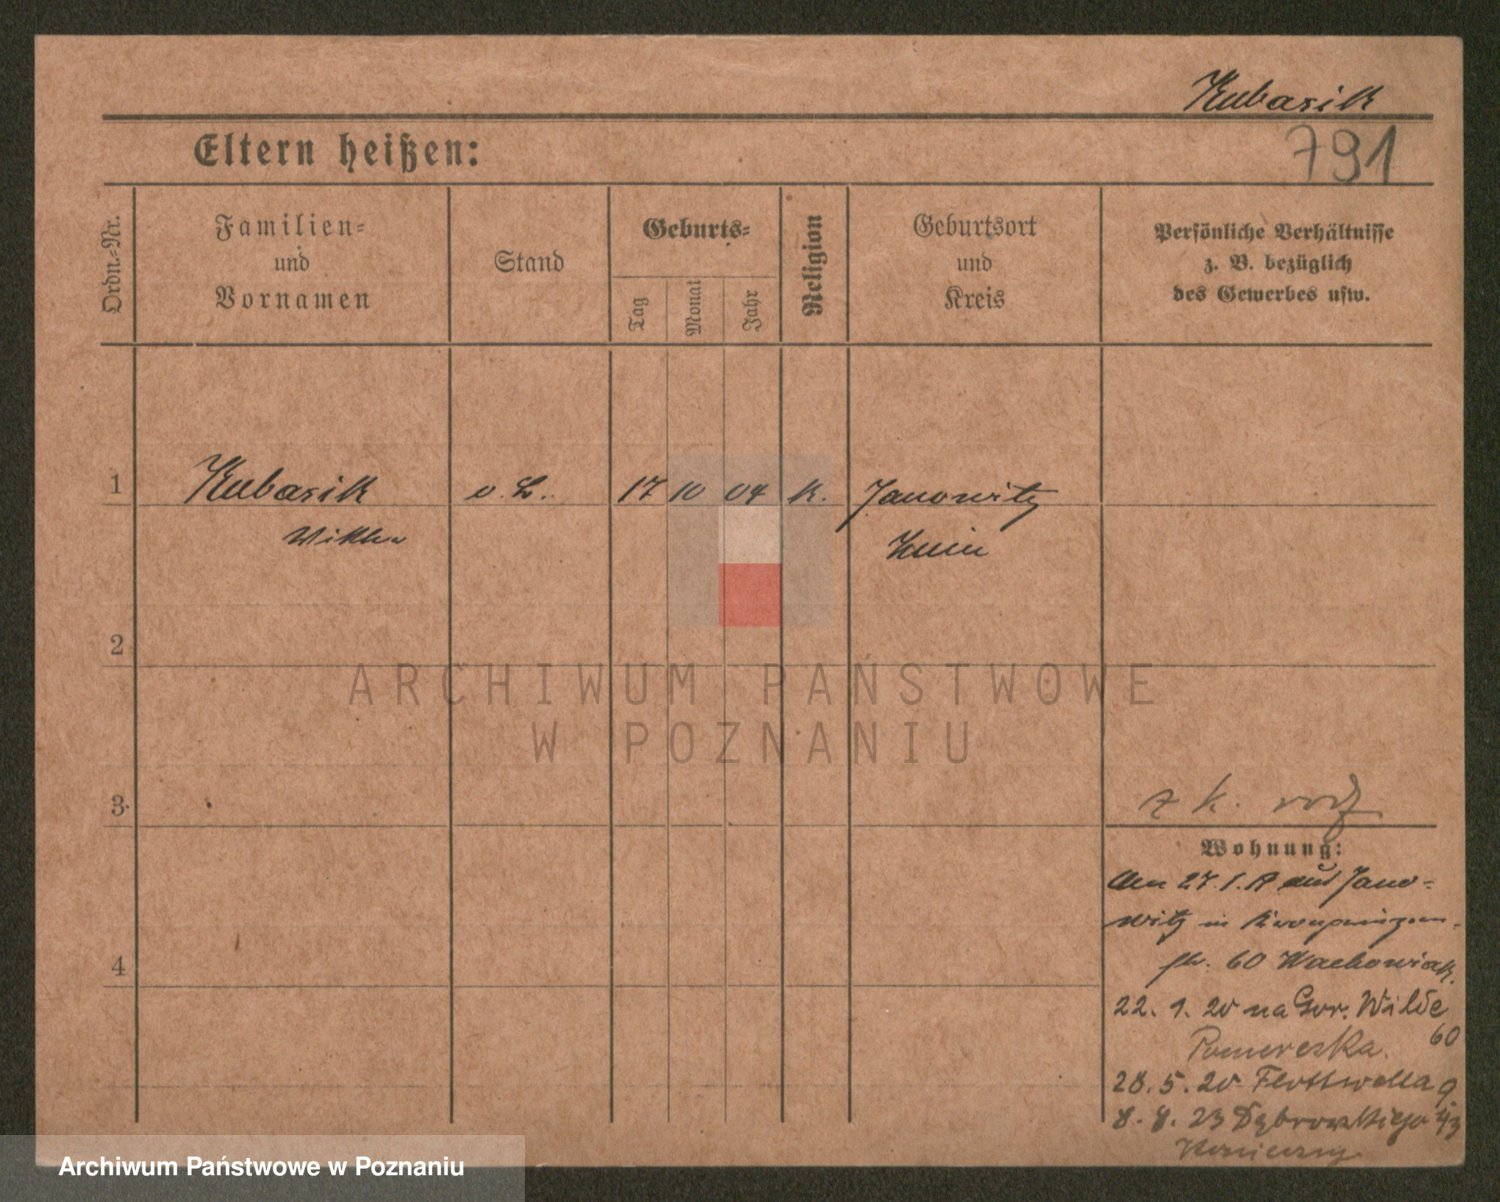 Kubasik
791
Eltern heißen:
Ordn.-Nr.
Familien-
und
Vornamen
Stand
Geburts-
Tag
Monat
Jahr
Religion
Geburtsort
und
Kreis
Persönliche Verhältnisse
z. B. bezüglich
des Gewerbes usw.
1 Kubasik o. L. 17 10 04 k. Janowitz
Znin
2
ARCHIWUM PAŃSTWOWE
W POZNANIU
3
z k.
Wohnung:
27.1. aus Jano-
witz in Kronprinzen-
60 Wachowiak.
22. 1. 20 na Gór. Wilde
60
28. 5. 20 Flottwella 9.
8. 8. 23 Dąbrowskiego 43
Konieczny
4
Archiwum Państwowe w Poznaniu